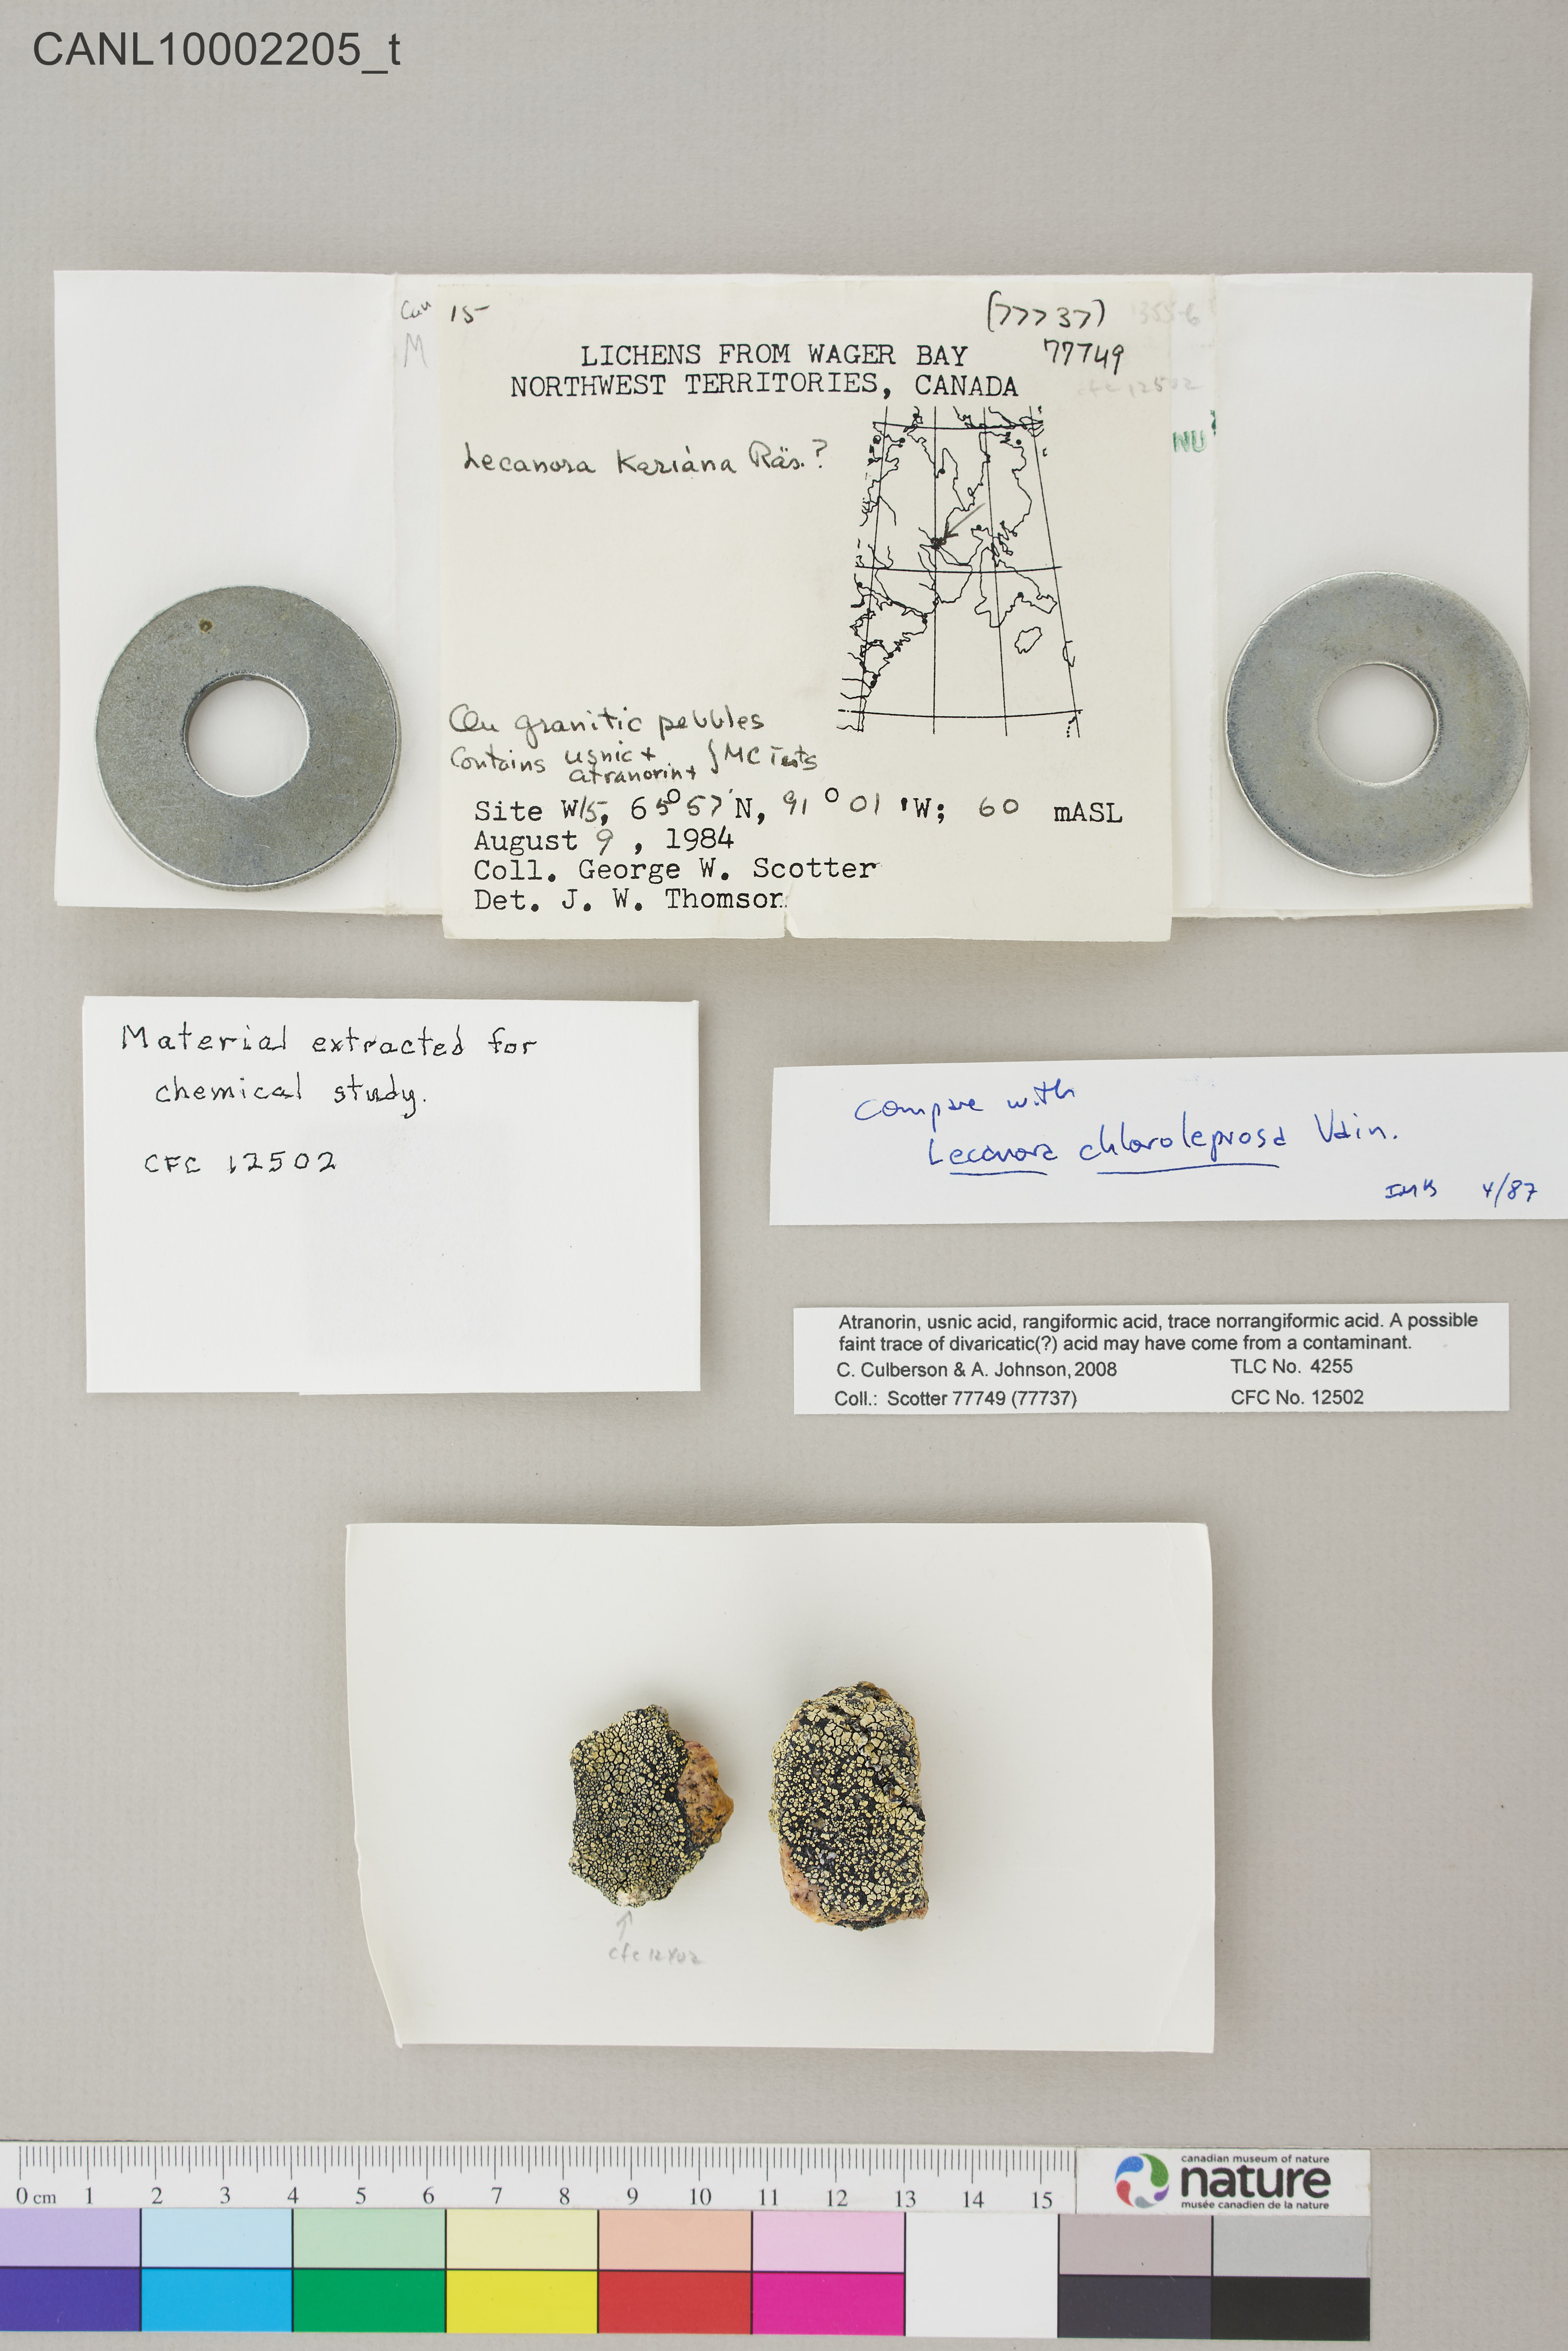 CANL10002205_t
Can 15 (77737)
M
LICHENS FROM WAGER BAY 77749
NORTHWEST TERRITORIES, CANADA
cfc 12502
NU
Lecanora Kariána Räs.?
On granitic pebbles
Contains usnic + } MC Tests
atranorin +
Site W15, 65°57'N, 91°01'W; 60 mASL
August 9, 1984
Coll. George W. Scotter
Det. J. W. Thomson
Material extracted for
chemical study.
CFC 12502
Compare with
Lecanora chloroleprosa Vain.
IMB 4/87
Atranorin, usnic acid, rangiformic acid, trace norrangiformic acid. A possible
faint trace of divaricatic(?) acid may have come from a contaminant.
C. Culberson & A. Johnson, 2008 TLC No. 4255
Coll.: Scotter 77749 (77737) CFC No. 12502
cfc 12502
0 cm 1 2 3 4 5 6 7 8 9 10 11 12 13 14 15
canadian museum of nature
nature
musée canadien de la nature